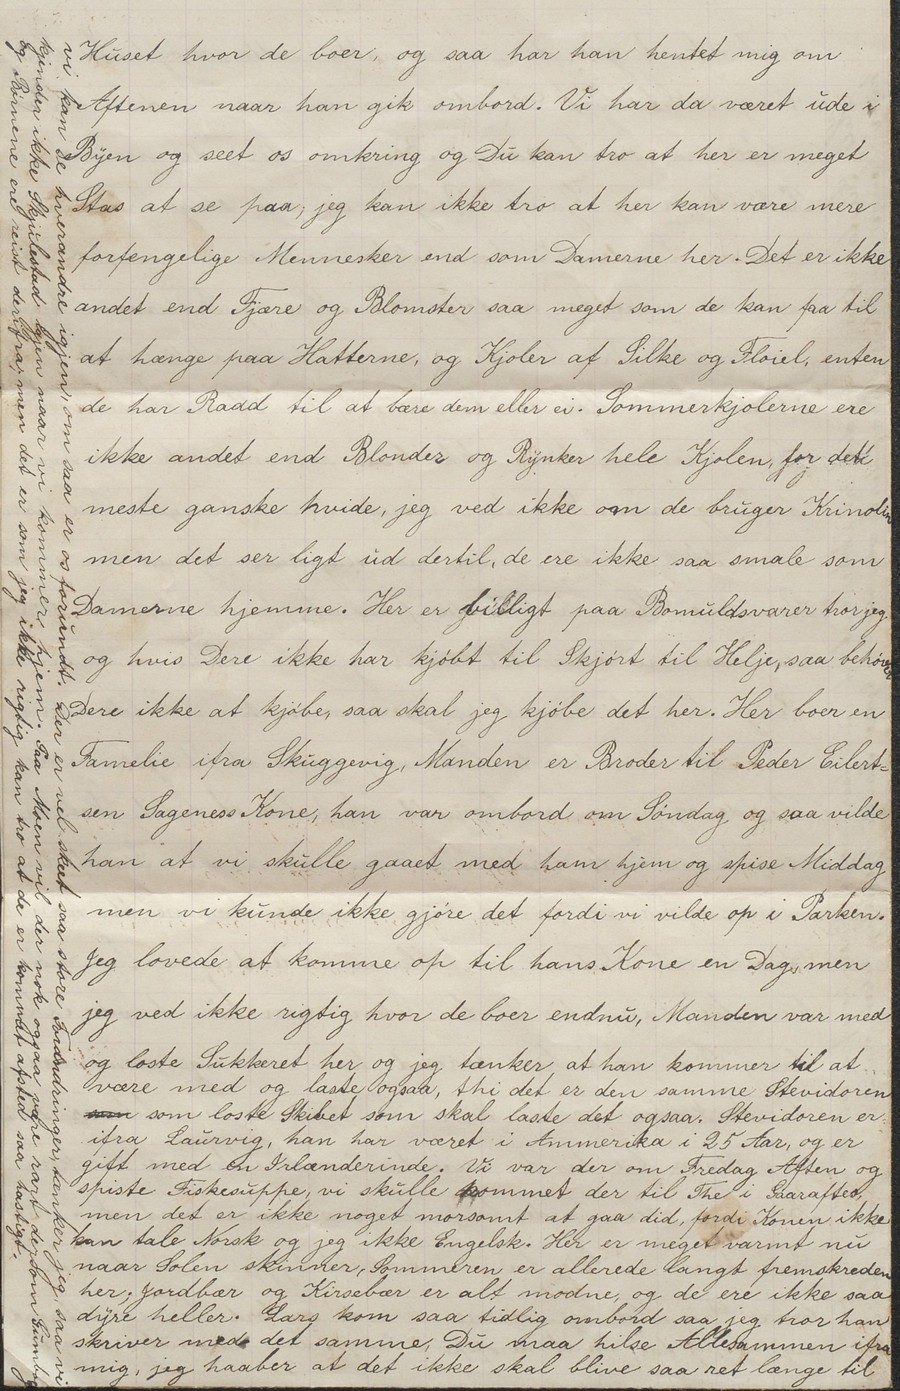 Huset hvor de boer, og saa har han hentet mig om
Aftenen naar han gik ombord. Vi har da været ude i
Byen og seet os omkring og Du kan tro at her er meget
Stas at se paa, jeg kan ikke tro at her kan være mere
forfengelige Mennesker end som Damerne her. Det er ikke
andet end Fjære og Blomster saa meget som de kan faa til
at hænge paa Hatterne, og Kjoler af Silke og Fløiel, enten
de har Radd til at bære dem eller ei. Sommerkjolerne ere
ikke andet end Blonder og Rynker hele Kjolen, for det
meste ganske hvide, jeg ved ikke om de bruger Krinolin
men det ser ligt ud dertil, de ere ikke saa smale som
Damerne hjemme. Her er billigt paa Bomuldsvarer tror jeg
og hvis Dere ikke har kjøbt til Skjørt til Helje, saa behøver
Dere ikke at kjøbe, saa skal jeg kjøbe det her. Her boer en
Famelie ifra Skuggevig, Manden er Broder til Peder Eilert=
sen Sageness Kone, han var ombord om Søndag og saa vilde
han at vi skulle gaaet med ham hjem og spise Middag
men vi kunde ikke gjøre det fordi vi vilde op i Parken.
Jeg lovede at komme op til hans Kone en Dag, men
jeg ved ikke rigtig hvor de boer endnu, Manden var med
og loste Sukkeret her og jeg tænker at han kommer til at
være med og laste ogsaa, thi det er den samme Stevidoren
som som loste Skibet som skal laste det ogsaa. Stevidoren er
ifra Laurvig, han har været i Ammerika i 25 Aar, og er
gift med en Irlænderinde. Vi var der om Fredag Aften og
spiste Fiskesuppe, vi skulle kommet der til The i Gaaraftes,
men det er ikke noget morsomt at gaa did, fordi Konen ikke
kan tale Norsk og jeg ikke Engelsk. Her er meget varmt nu
naar Solen skinner, Sommeren er allerede langt fremskreden
her; Jordbær og Kirsebær er alt modne, og de ere ikke saa
dyre heller. Lars kom saa tidlig ombord saa jeg tror han
skriver med det samme, Du maa hilse Allesammen ifra
mig, jeg haaber at det ikke skal blive saa ret længe til
vi kan se hverandre igjen, om saa er os forundt. Der er vel skeet saa store Forandringer, tænker jeg, saa vi
kjender ikke Skjulestad igjen naar vi kommer hjem. Paa Moen vil der nok ogsaa være rart, dersom
og Børnene ere reist derifra, men det er som jeg ikke rigtig kan tro at de er kommet afsted saa hastigt.